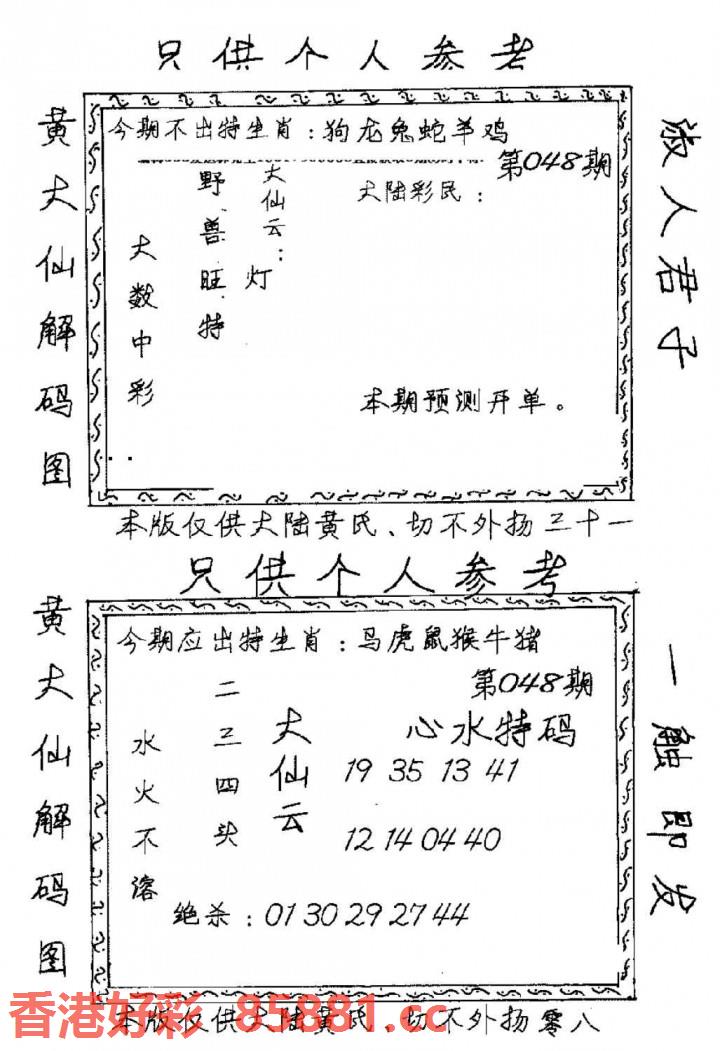 只供个人参考
黄大仙解码图
淑人君子
今期不出特生肖：狗龙兔蛇羊鸡
第048期
大仙云：
灯
野兽旺特
大数中彩
大陆彩民：
本期预测开单。
本版仅供大陆黄民、切不外扬三十一
只供个人参考
黄大仙解码图
一触即发
今期应出特生肖：马虎鼠猴牛猪
第048期
大仙云
二三四头
水火不溶
心水特码
19 35 13 41
12 14 04 40
绝杀：01 30 29 27 44
香港好彩 85881.cc
本版仅供大陆黄民、切不外扬零八